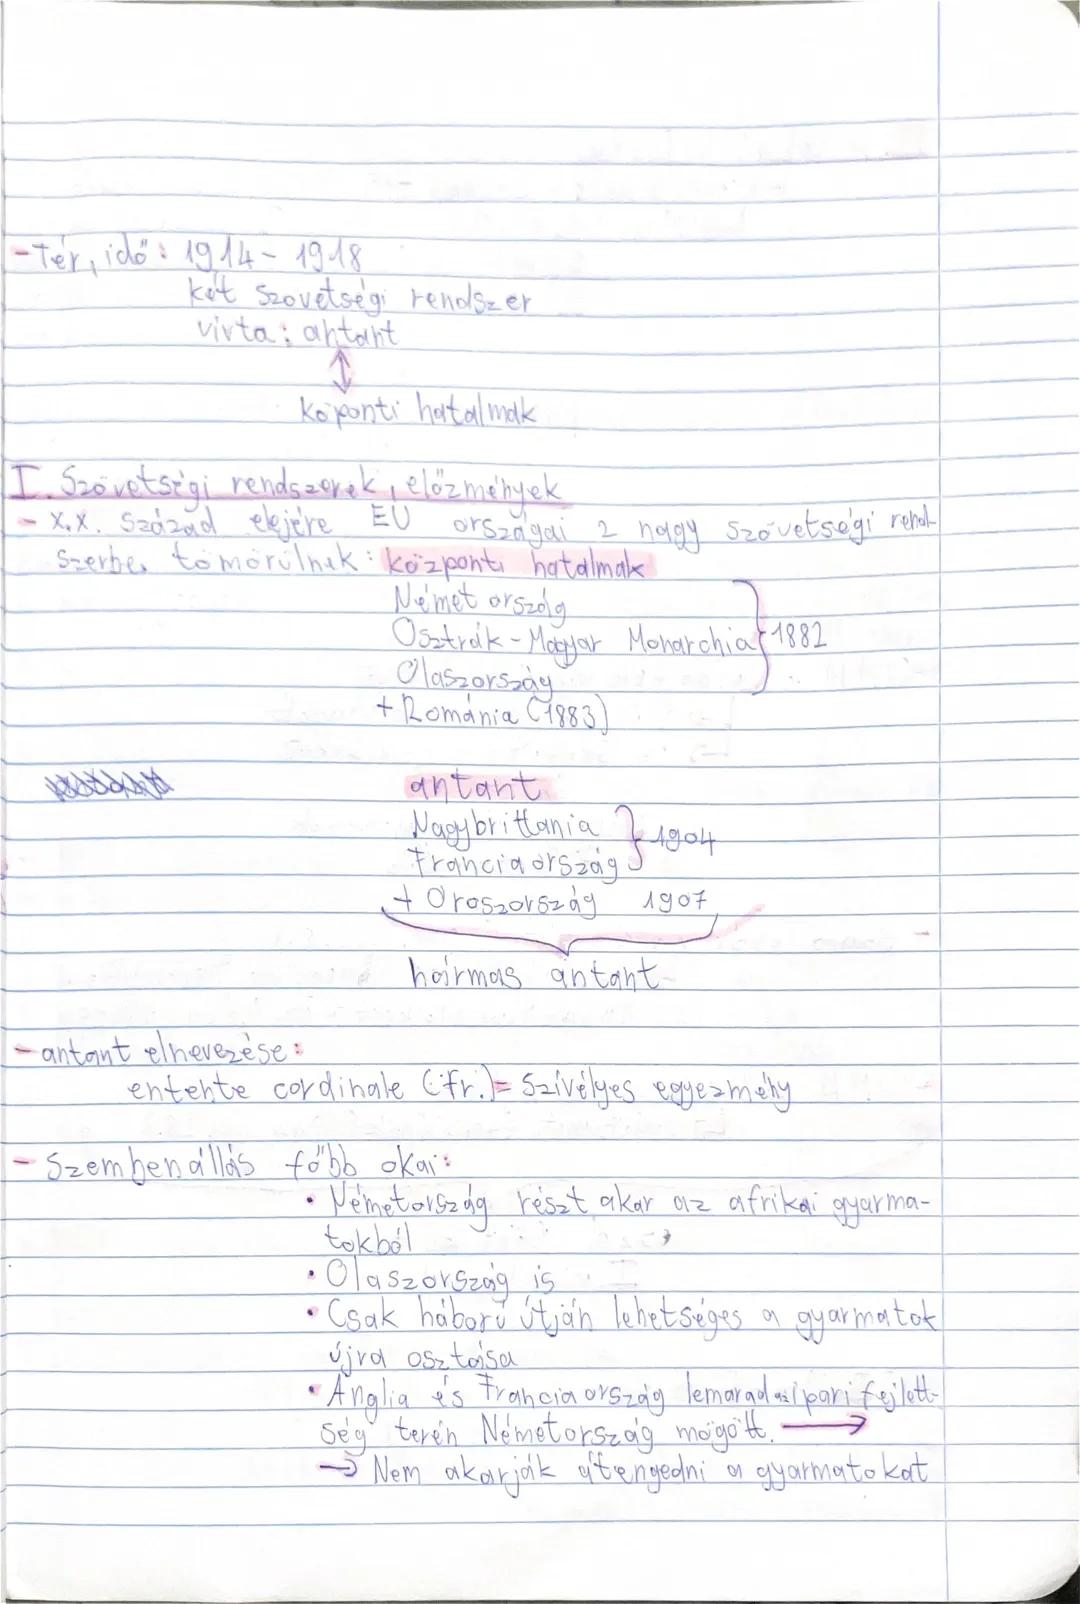 - Tér, idő: 1914 - 1918
két szövetségi rendszer
vívta: antant
↕
központi hatalmak
I. Szövetségi rendszerek, előzmények
- X.X. Század elejére EU országai 2 nagy szövetségi rend-
szerbe tömörülnek: központi hatalmak
Német ország
Osztrák - Magyar Monarchia } 1882
Olaszország
+ Románia (1883)
antant
Nagybrittania
Franciaország } 1904
+ Oroszország 1907
hármas antant
- antant elnevezése:
entente cordinale (fr.) = Szívélyes egyezmény
- Szembenállás főbb okai:
• Németország részt akar az afrikai gyarma-
tokból
• Olaszország is
• Csak háború útján lehetséges a gyarmatok
újra osztása
• Anglia és Franciaország lemarad az ipari fejlett-
ség terén Németország mögött. →
→ Nem akarják átengedni a gyarmatokat